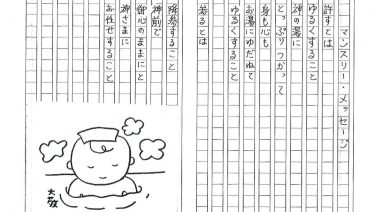 マンスリー・メッセージ
許すとは
ゆるくすること
神の湯に
とっぷりつかって
身も心も
お湯にゆだねて
ゆるくすること
参るとは
降参すること
神前で
御心のままにと
神さまに
お任せすること